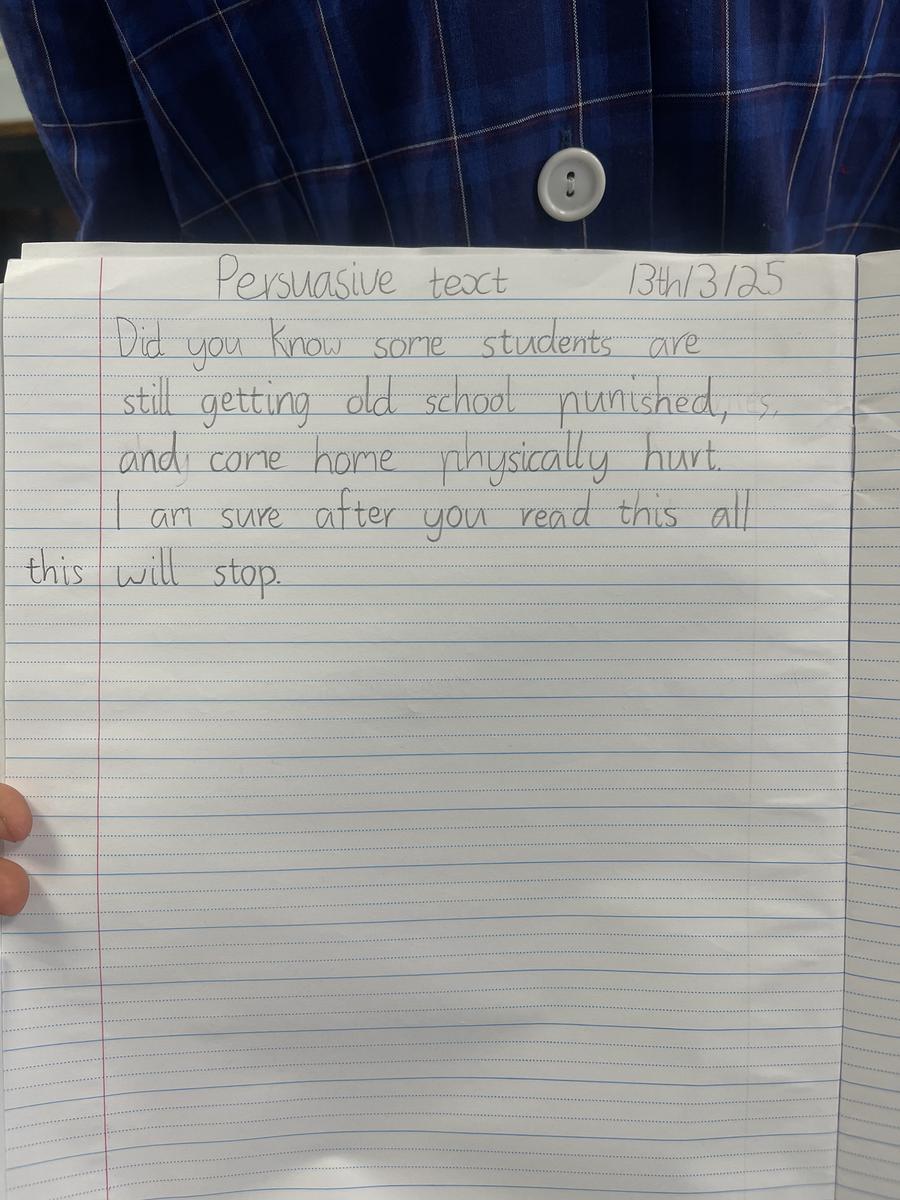 Persuasive text 13th/3/25
Did you know some students are
still getting old school punished,
and come home physically hurt.
I am sure after you read this all
this will stop.